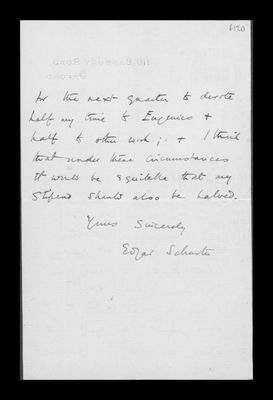 6120
110, Banbury Road
Oxford
for the next quarter to devote
half my time to Eugenics +
half to other work ; + I think
that under these circumstances
it would be equitable that my
stipend should also be halved.
Yours Sincerely
Edgar Schuster